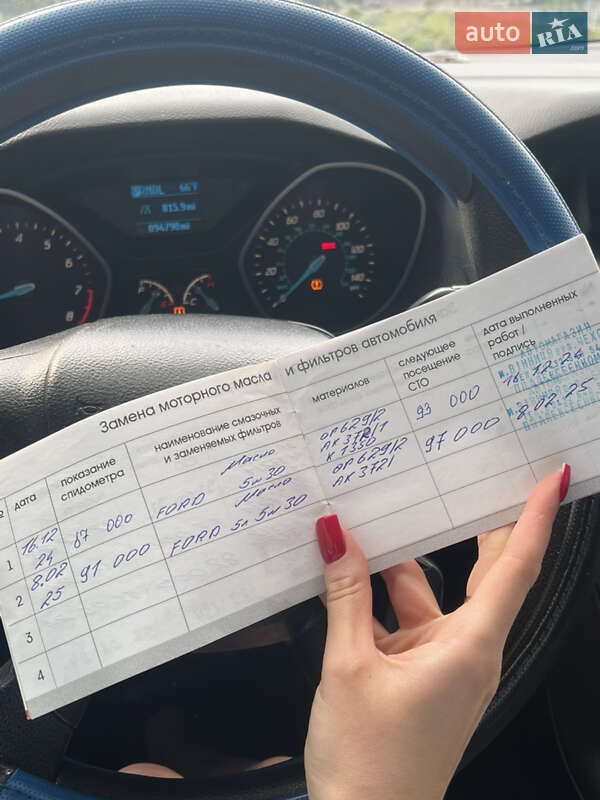 auto RIA.com
NRML 66°F
815.9 mi
094790mi
4 5 6 7 8
20 40 60 80 100 120 140
Замена моторного масла и фильтров автомобиля
№ дата показание спидометра наименование смазочных и заменяемых фильтров материалов следующее посещение СТО дата выполненных работ / подпись
1 16.12 24 87 000 FORD Масло 5w30 OP629/2 AK372/1 K1350 93 000 16.12.24
2 8.02 25 91 000 FORD Масло 5л 5w30 OP629/2 AK372/1 97 000 8.02.25
3
4